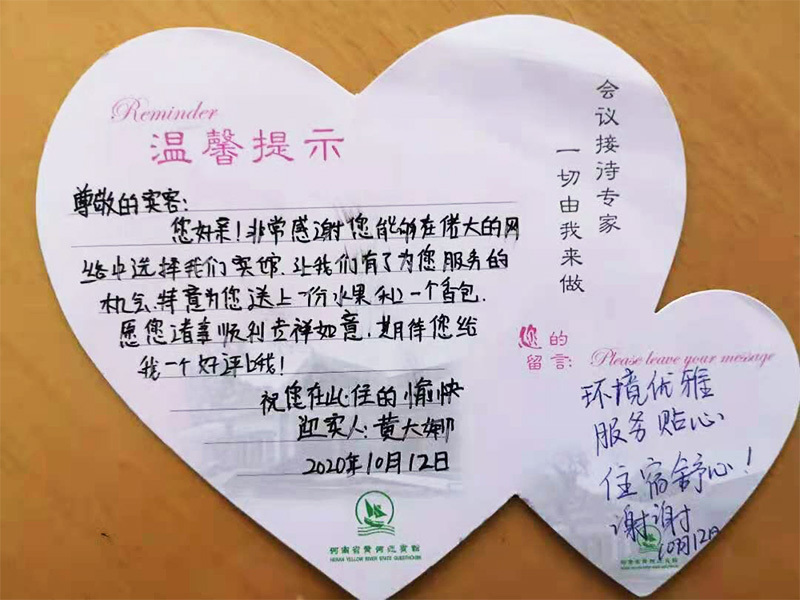 Reminder
温馨提示
尊敬的宾客:
您好呆!非常感谢您能够在偌大的网
络中选择我们宾馆.让我们有了为您服务的
机会.特意为您送上一份水果和一个香包.
愿您诸事顺利吉祥如意.期待您给
我一个好评哦!
祝您在此住的愉快
迎宾人:黄大娜
2020年10月12日
河南省黄河迎宾馆
HENAN YELLOW RIVER STATE GUESTHOUSE
会议接待专家
一切由我来做
您的
留言:
Please leave your message
环境优雅
服务贴心
住宿舒心!
谢谢
10月12日